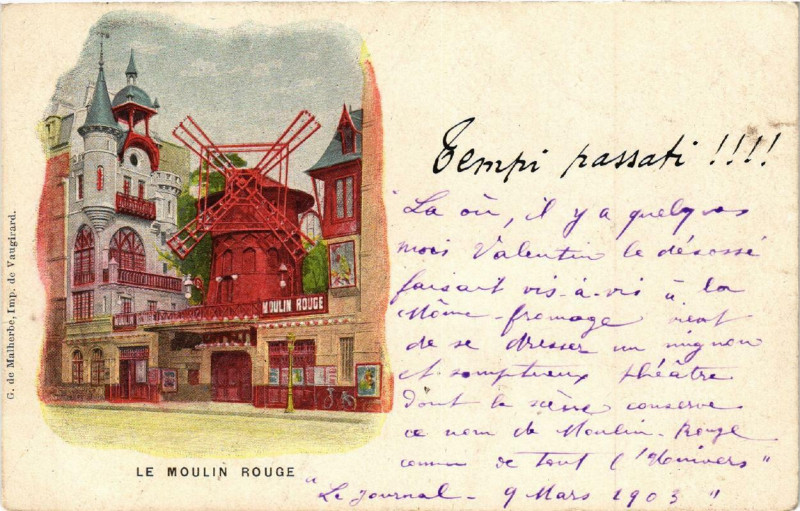 G. de Malherbe, Imp. de Vaugirard.
MOULIN ROUGE
MOULIN
LE MOULIN ROUGE
Tempi passati !!!!
"Là où, il y a quelques
mois Valentin le désossé
faisait vis-à-vis à la
Môme-fromage vient
de se dresser un mignon
et somptueux théâtre
dont la scène conserve
ce nom de Moulin-Rouge
connu de tout l'Univers"
"Le Journal - 9 Mars 1903"